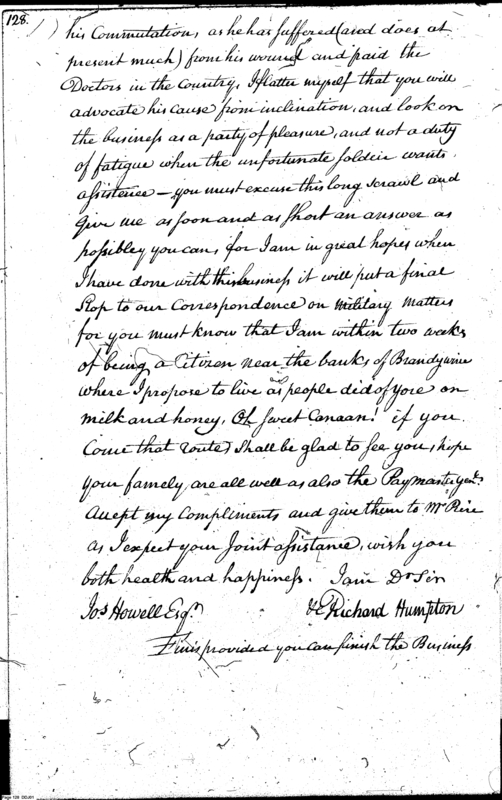 128
his Commutation, as he has suffered (and does at
present much) from his wound and paid the
Doctors in the Country, I flatter myself that you will
advocate his cause from inclination, and look on
the business as a party of pleasure, and not a duty
of fatigue when the unfortunate soldier wants
assistence — you must excuse this long scrawl and
Give me as soon and as short an answer as
possibley you can, for I am in great hopes when
I have done with this business it will put a final
Stop to our Correspondence on Military matters
for you must know that I am within two weeks
of being a Citizen near the banks of Brandywine
where I propose to live as people did of yore on
milk and honey, Oh sweet Canaan! if you
Come that route, I shall be glad to see you, hope
your famely are all well as also the Paymaster Genl.
Accept my Compliments and give them to Mr
as I expect your Joint assistance, wish you
both health and happiness. I am Dr Sir
Jos Howell Esqr &c Richard Humpton
Finis provided you can finish the Business
Page 128